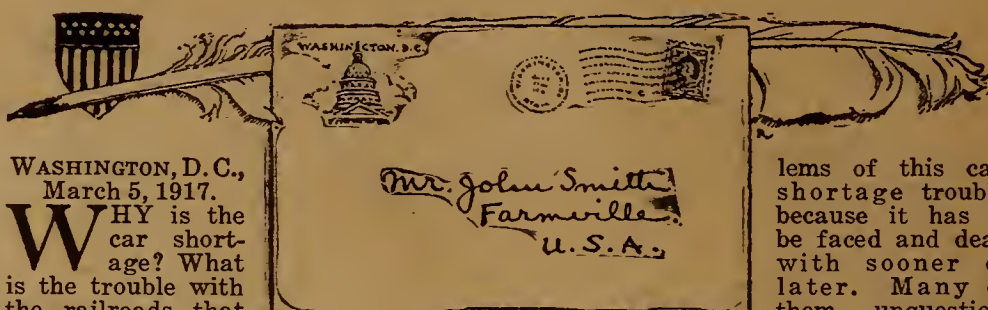 WASHINGTON, D.C.
Mr. John Smith
Farmville
U.S.A.
WASHINGTON, D. C.,
March 5, 1917.
WHY is the
car short-
age? What
is the trouble with
the railroads that
lems of this ca
shortage troub
because it has
be faced and dea
with sooner
later. Many
them unquestio